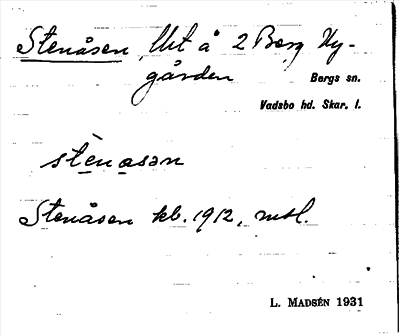 Stenåsen, Ut å 2 Berg Ny-
gården
Bergs sn.
Vadsbo hd. Skar. l.
stènasən
Stenåsen kb. 1912, mtl.
L. MADSÉN 1931